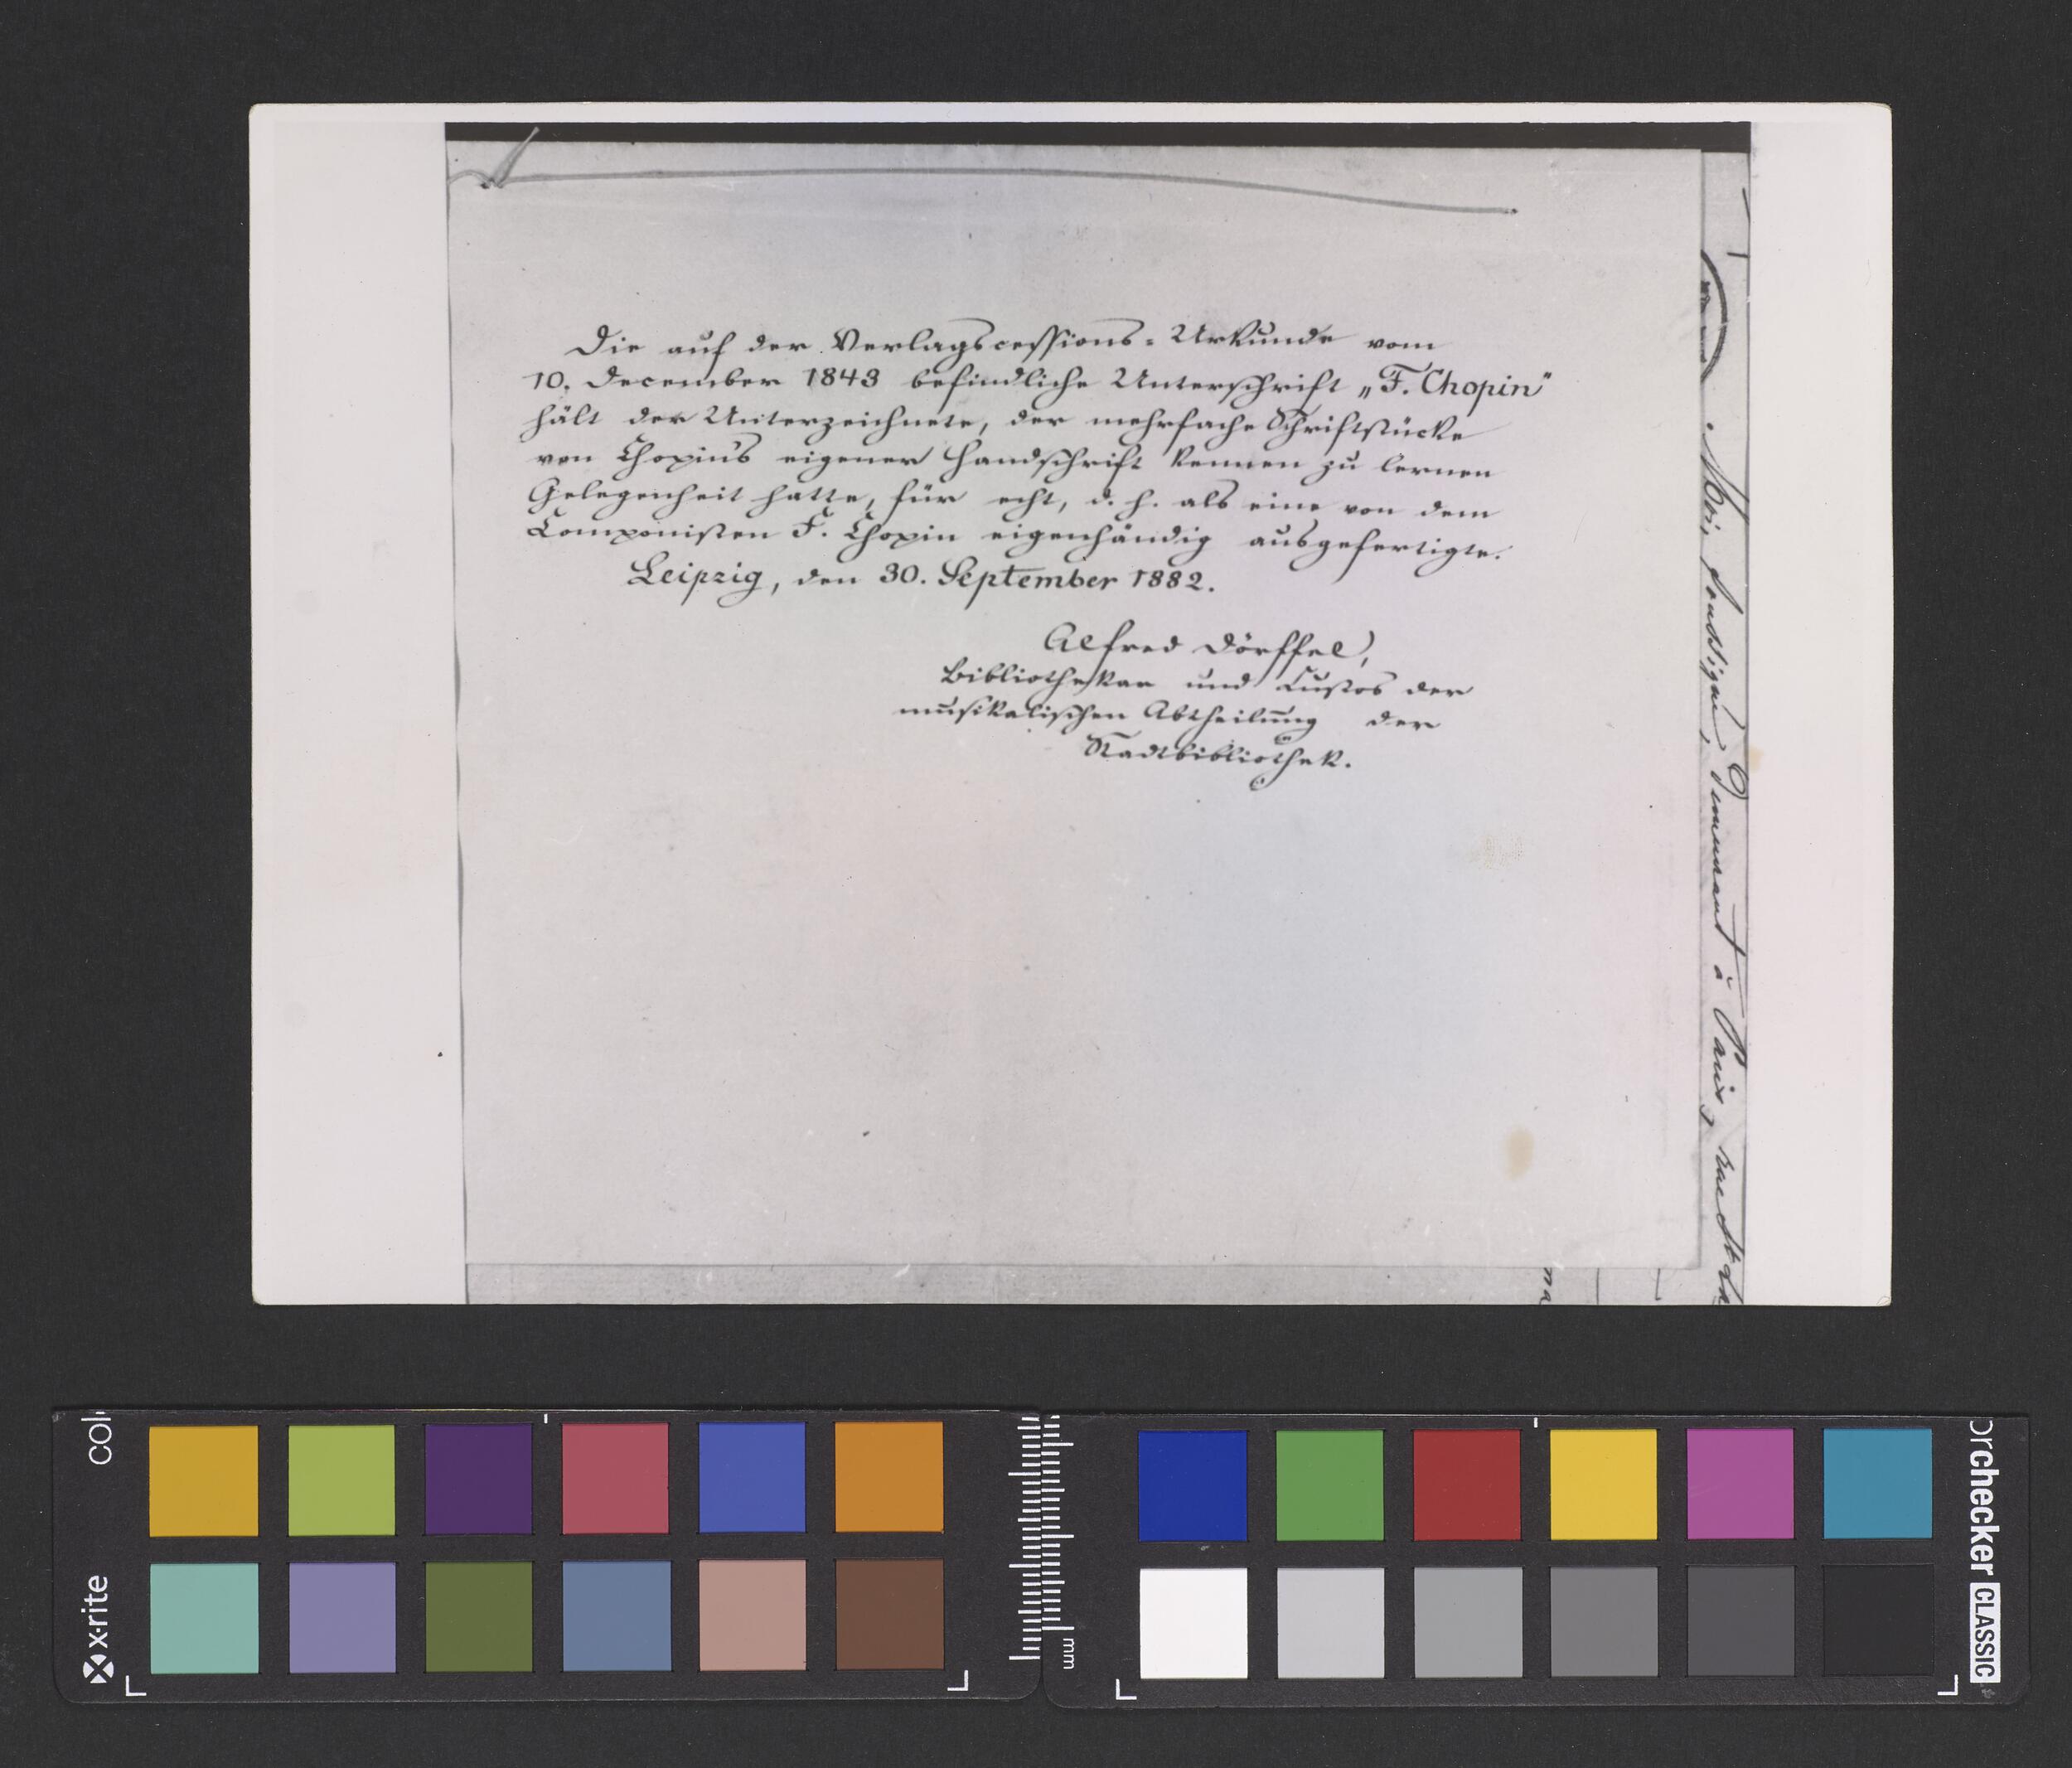 Die auf der Verlagscessions-Urkunde vom
10. December 1843 befindliche Unterschrift „F. Chopin"
hält der Unterzeichnete, der mehrfache Schriftstücke
von Chopin's eigener Handschrift kennen zu lernen
Gelegenheit hatte, für echt, d. h. als eine von dem
Componisten F. Chopin eigenhändig ausgefertigte.
Leipzig, den 30. September 1882.
Alfred Dörffel,
Bibliothekar und Custos der
musikalischen Abtheilung der
Stadtbibliothek.
Moi, soussigné, demeurant à Paris, rue St La
ma
x-rite
col
mm
orchecker CLASSIC